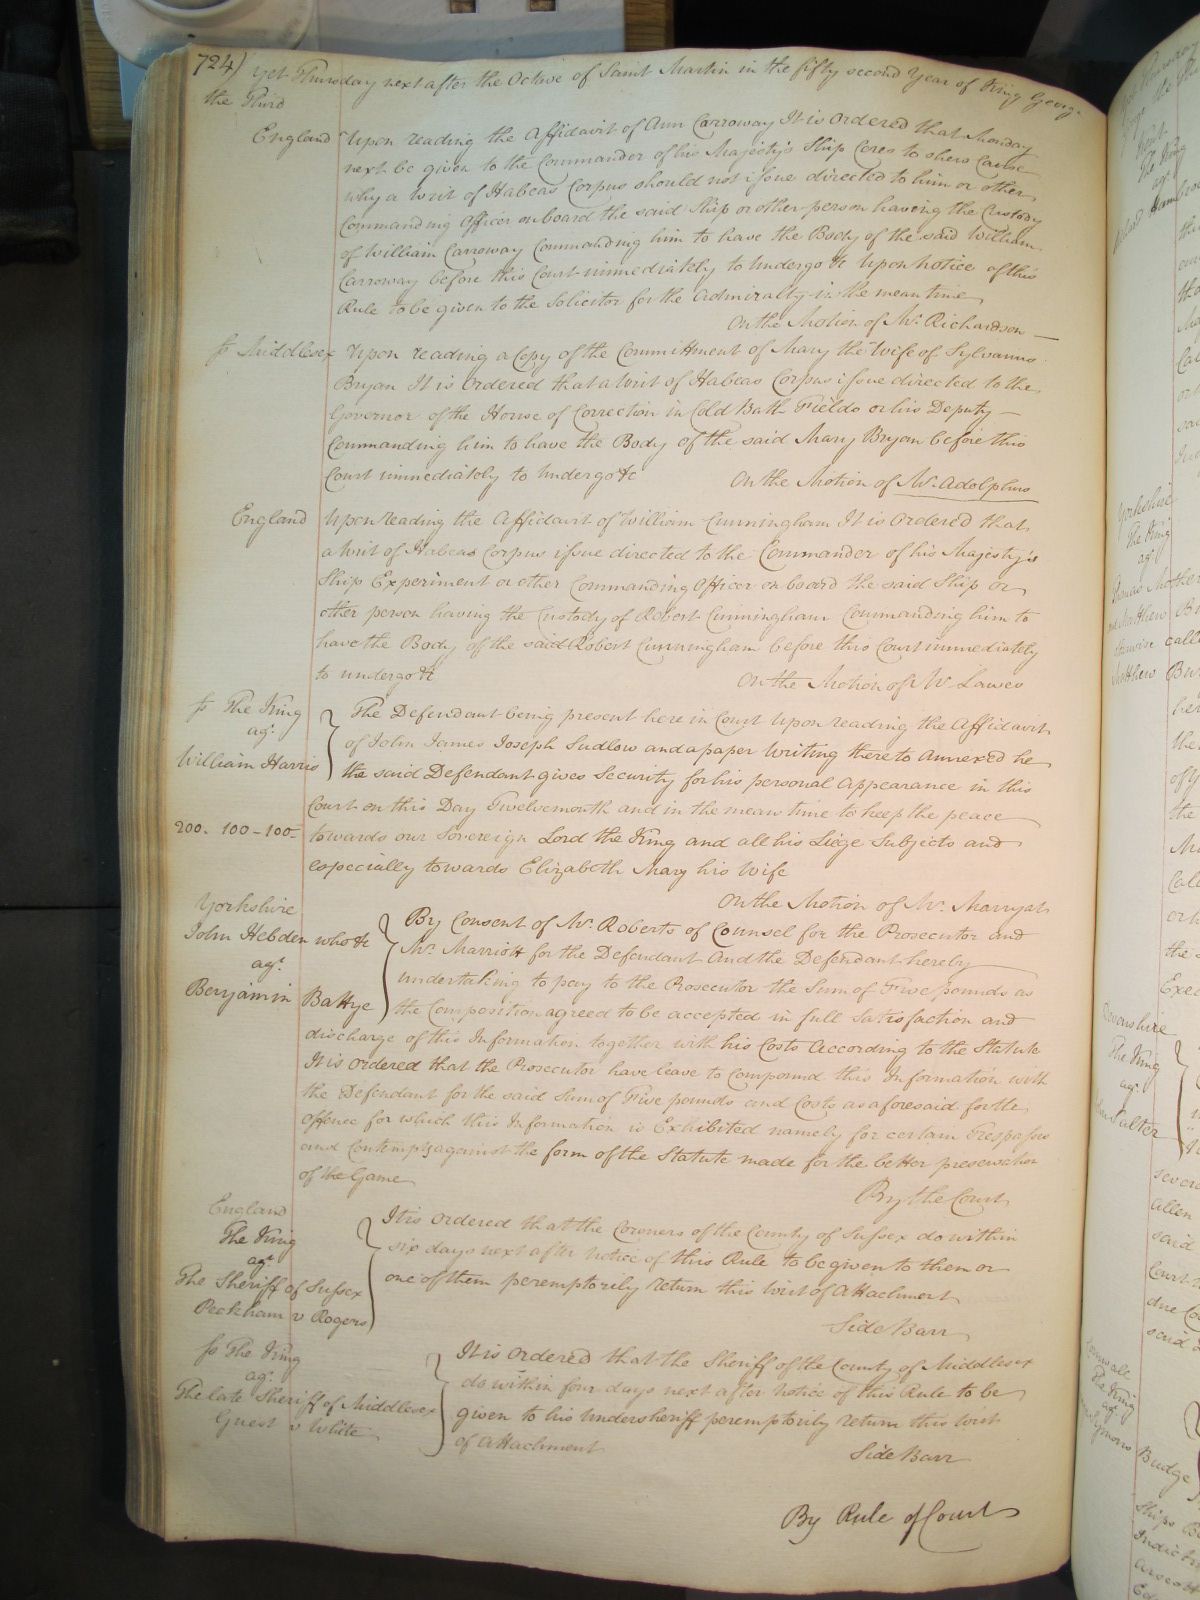 724) Yet Thursday next after the Octave of Saint Martin in the fifty second Year of King George
the Third
England Upon reading the Affidavit of Ann Carroway It is Ordered that Monday
next be given to the Commander of his Majesty's Ship Ceres to shew Cause
why a Writ of Habeas Corpus should not issue directed to him or other
Commanding Officer on board the said Ship or other person having the Custody
of William Carroway Commanding him to have the Body of the said William
Carroway before this Court immediately to undergo &c Upon Notice of this
Rule to be given to the Solicitor for the Admiralty in the mean time
On the Motion of Mr. Richardson
Middlesex Upon reading a Copy of the Commitment of Mary the Wife of Sylvanus
Bryan It is Ordered that a Writ of Habeas Corpus issue directed to the
Governor of the House of Correction in Cold Bath Fields or his Deputy
Commanding him to have the Body of the said Mary Bryan before this
Court immediately to undergo &c On the Motion of Mr. Adolphus
England Upon reading the Affidavit of William Cunningham It is Ordered that
a Writ of Habeas Corpus issue directed to the Commander of his Majesty's
Ship Experiment or other Commanding Officer on board the said Ship or
other person having the Custody of Robert Cunningham Commanding him to
have the Body of the said Robert Cunningham before this Court immediately
to undergo &c On the Motion of Mr. Lawes
The King
agt.
William Harris
200. 100-100-
The Defendant being present here in Court Upon reading the Affidavit
of John James Joseph Sudlow and a paper Writing thereto Annexed he
the said Defendant gives Security for his personal Appearance in this
Court on this Day Twelvemonth and in the mean time to keep the peace
towards our Sovereign Lord the King and all his Liege Subjects and
especially towards Elizabeth Mary his Wife
On the Motion of Mr. Marryat
Yorkshire
John Hebden who &c
agt.
Benjamin Battye
By Consent of Mr. Roberts of Counsel for the Prosecutor and
Mr. Marriott for the Defendant And the Defendant hereby
undertaking to pay to the Prosecutor the Sum of Five pounds as
the Composition agreed to be accepted in full Satisfaction and
discharge of this Information together with his Costs According to the Statute
It is Ordered that the Prosecutor have leave to Compound this Information with
the Defendant for the said Sum of Five pounds and Costs as aforesaid for the
Offence for which this Information is Exhibited namely for certain Trespasses
and Contempts against the form of the Statute made for the better preservation
of the Game
By the Court
England
The King
agt.
The Sheriff of Sussex
Peckham v Rogers
It is Ordered that the Coroners of the County of Sussex do within
six days next after Notice of this Rule to be given to them or
one of them peremptorily return this Writ of Attachment
Side Barr
The King
agt.
The late Sheriff of Middlesex
Guest v White
It is Ordered that the Sheriff of the County of Middlesex
do within four days next after Notice of this Rule to be
given to his Undersheriff peremptorily return this Writ
of Attachment
Side Barr
By Rule of Court
Yorkshire
The King
agt.
Matthew
The King
agt.
Salter
The King
agt.
Budge